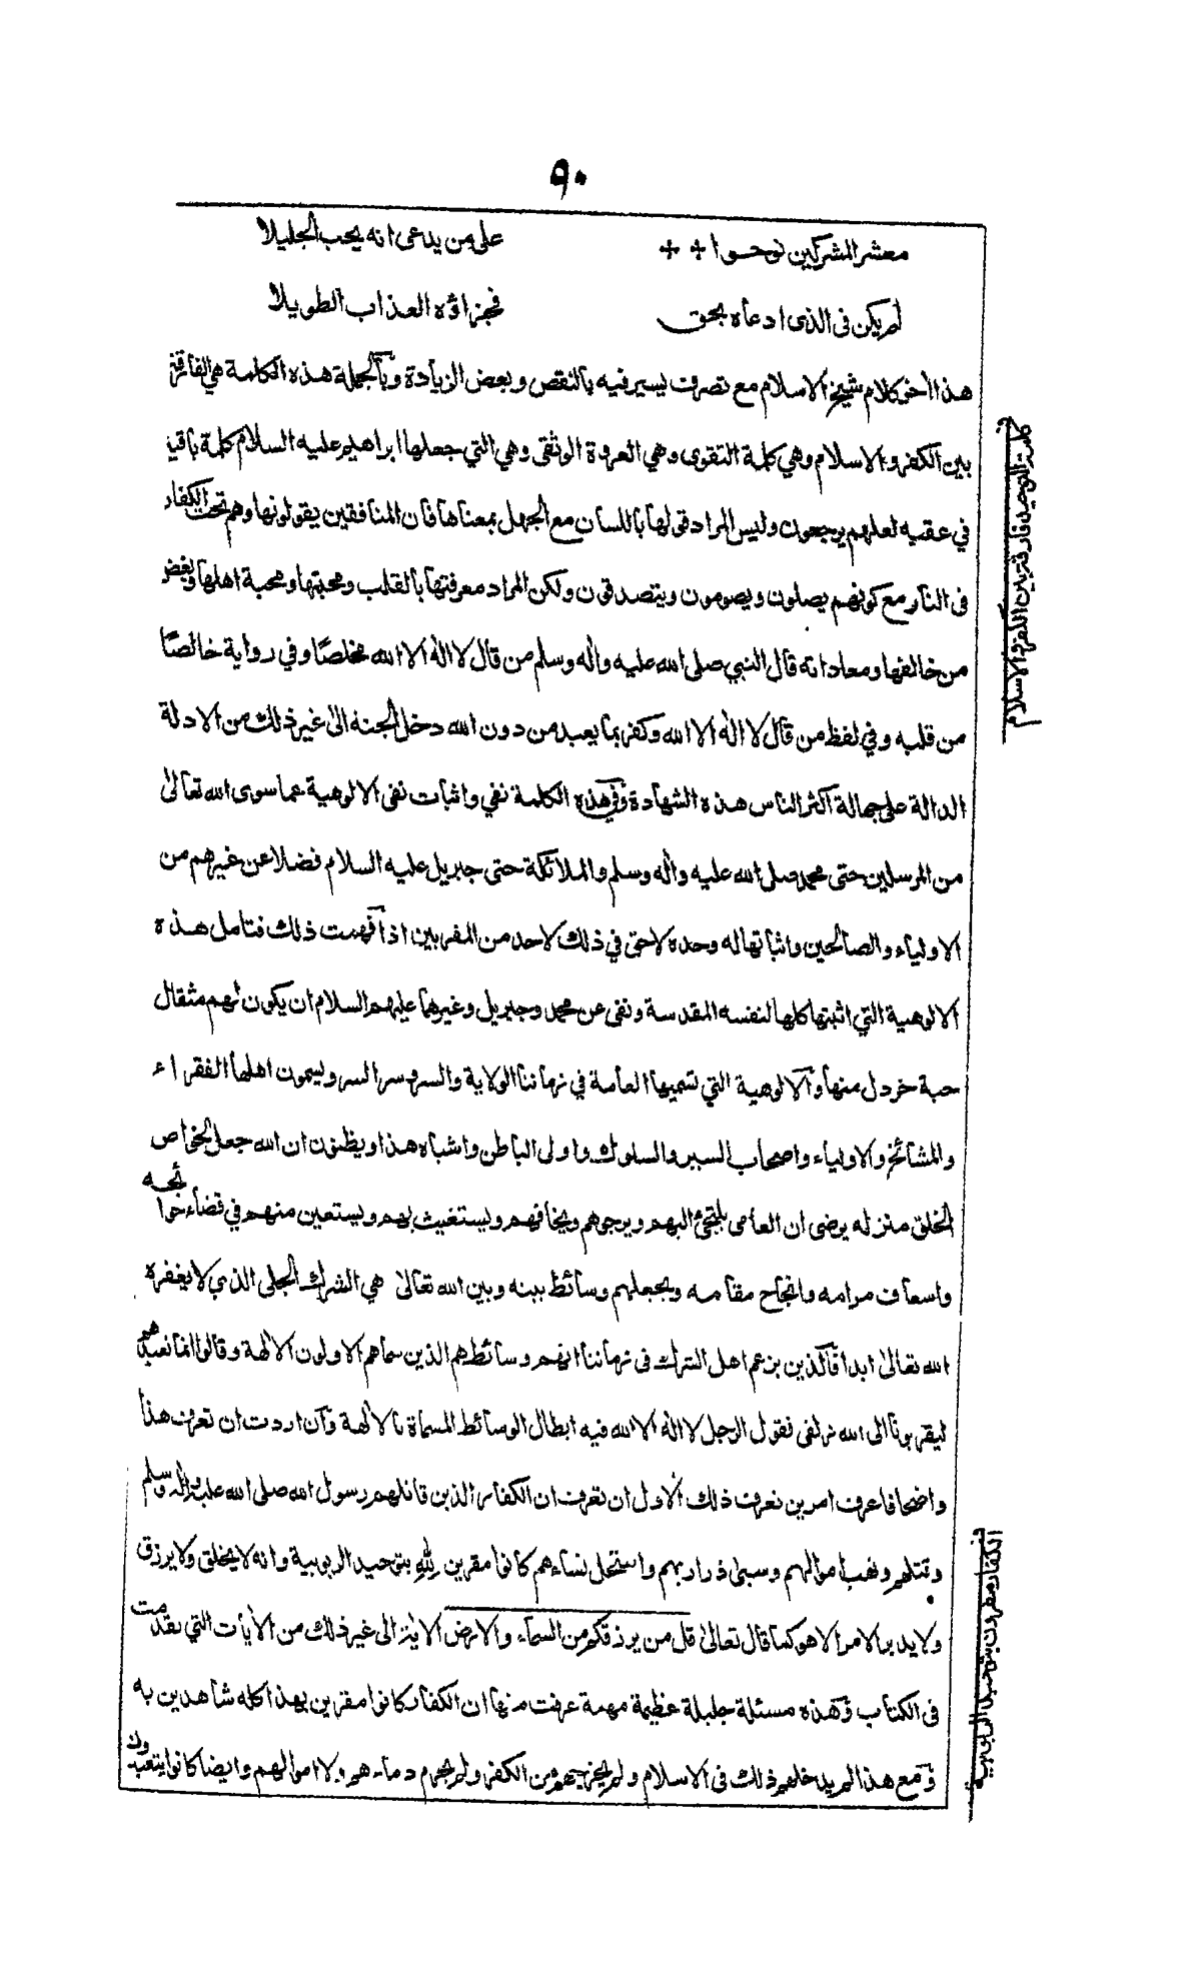 ٩٠
معشر المشركين نوحوا ++ على من يدعى انه يحب الجليلا
لم يكن فى الذى ادعاه بحق فجزاؤه العذاب الطويلا
هذا اخر كلام شيخ الاسلام مع تصرف يسير فيه بالنقص وبعض الزيادة وبالجملة هذه الكلمة هي الفارقة
بين الكفر والاسلام وهي كلمة التقوى وهي العروة الوثقى وهي التي جعلها ابراهيم عليه السلام كلمة باقية
في عقبه لعلهم يرجعون وليس المراد قولها باللسان مع الجهل بمعناها فان المنافقين يقولونها وهم تحت الكفار
فى النار مع كونهم يصلون ويصومون ويتصدقون ولكن المراد معرفتها بالقلب ومحبتها ومحبة اهلها وبغض
من خالفها ومعاداته قال النبي صلى الله عليه واله وسلم من قال لا اله الا الله مخلصًا وفي رواية خالصًا
من قلبه وفي لفظ من قال لا اله الا الله وكفر بما يعبد من دون الله دخل الجنة الى غير ذلك من الادلة
الدالة على جهالة اكثر الناس هذه الشهادة وفي هذه الكلمة نفي واثبات نفى الالوهية عما سوى الله تعالى
من المرسلين حتى محمد صلى الله عليه واله وسلم والملائكة حتى جبريل عليه السلام فضلا عن غيرهم من
الاولياء والصالحين واثباتها له وحده لا حق في ذلك لاحد من المقربين اذا فهمت ذلك فتامل هذه
الالوهية التي اثبتها كلها لنفسه المقدسة ونفى عن محمد وجبريل وغيرهما عليهم السلام ان يكون لهم مثقال
حبة خردل منها والالوهية التي تسميها العامة في زماننا الولاية والسر وسر السر ويسمون اهلها الفقراء
والمشائخ والاولياء واصحاب السير والسلوك واولى الباطن واشباه هذا ويظنون ان الله جعل لخواص
الخلق منزله يرضى ان العامى يلتجئ اليهم ويرجوهم ويخافهم ويستغيث بهم ويستعين منهم في قضاء حوائجه
واسعاف مرامه وانجاح مقامه ويجعلهم وسائط بينه وبين الله تعالى هي الشرك الجلى الذي لا يغفره
الله تعالى ابدا فالذين يزعم اهل الشرك فى زماننا انهم وسائطهم الذين سماهم الاولون الالهة وقالوا انما نعبدهم
ليقربونا الى الله زلفى فقول الرجل لا اله الا الله فيه ابطال الوسائط المسماة بالالهة وان اردت ان تعرف هذا
واضحا فاعرف امرين نعرف ذلك الاول ان تعرف ان الكفار الذين قاتلهم رسول الله صلى الله عليه واله وسلم
وقتلهم ونهب اموالهم وسبى ذراريهم واستحل نساءهم كانوا مقرين لله بتوحيد الربوبية وانه لا يخلق ولا يرزق
ولا يدبر الامر الا هو كما قال تعالى قل من يرزقكم من السماء والارض الاية الى غير ذلك من الايات التي تقدمت
فى الكتاب وهذه مسئلة جليلة عظيمة مهمة عرفت منها ان الكفار كانوا مقرين بهذا كله شاهدين به
ومع هذا لم يدخلهم ذلك فى الاسلام ولم يخرجهم من الكفر ولم يحرم دماءهم ولا اموالهم وايضا كانوا يتعبدون
كلمة التوحيد فارقة بين الكفر والاسلام
الكفار مقرون بتوحيد الربوبية